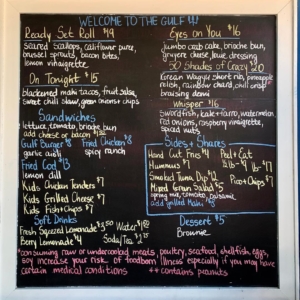 WELCOME TO THE GULF!!!
Ready Set Roll $19
seared scallops, califlower puree,
brussel sprouts, bacon bites,
lemon vinaigrette
On Tonight $15
blackened mahi tacos, fruit salsa,
sweet chili slaw, green onions + chips
Sandwiches
lettuce, tomato, brioche bun
add cheese or bacon
Gulf Burger $8 Fried Chicken $8
garlic aioli spicy ranch
Fried Cod $13
lemon dill
Kids Chicken Tenders $7
Kids Grilled Cheese $7
Kids Fish + Chips $7
Soft Drinks
Fresh Squeezed Lemonade $3.50 Water
Berry Lemonade $4 Soda/Tea
Eyes on You $16
jumbo crab cake, brioche bun,
gruyere cheese, dressing
50 Shades of Crazy $20
Grean Wagyu short rib, pineapple
relish, rainbow chard, chili crisp
braising demi
Whisper $16
Swordfish, kale + farro, watermelon
raspberry vinaigrette,
spiced nuts
Sides + Shares
Hand Cut Fries $4 Peel + Eat
Hummus $7 1/2 lb 1 lb
Smoked Tuna Dip $12 Pico + Chips $7
Mixed Green Salad $5
spring mix, tomato,
add grilled Mahi
Dessert $5
Brownie
*consuming raw or undercooked meats, poultry, seafood, shellfish, eggs,
may increase your risk of foodborn illness especially if you may have
certain medical conditions ** contains peanuts